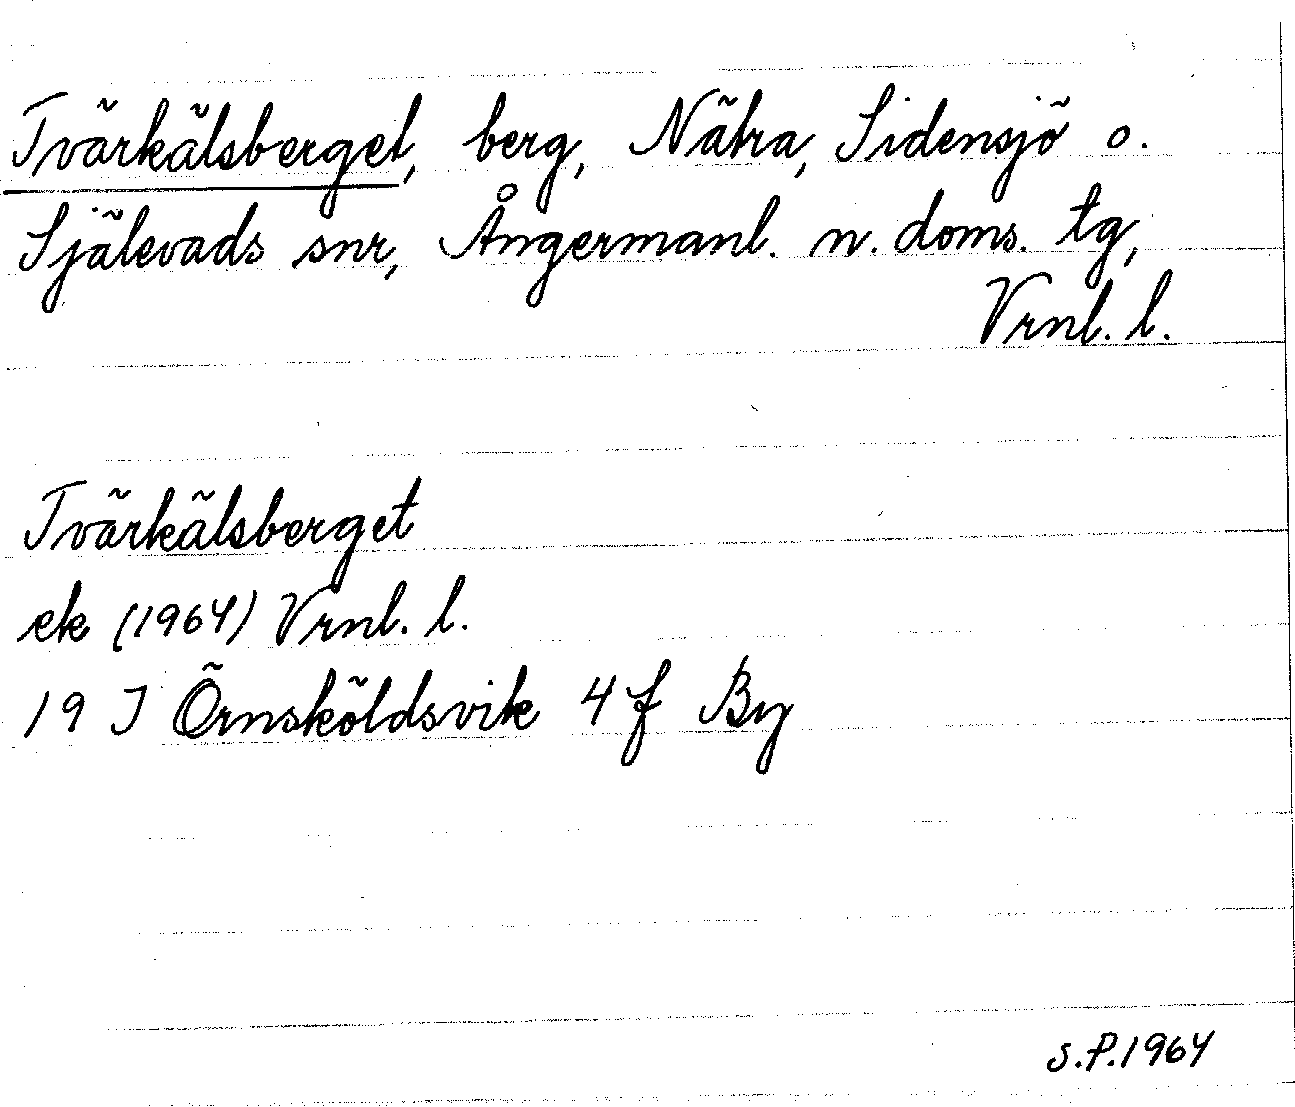 Tvärkälsberget, berg, Nätra, Sidensjö o.
Själevads snr, Ångermanl. n. doms. tg,
Vrnl. l.
Tvärkälsberget
ek (1964) Vrnl. l.
19 J Örnsköldsvik 4 f By
S.P.1964